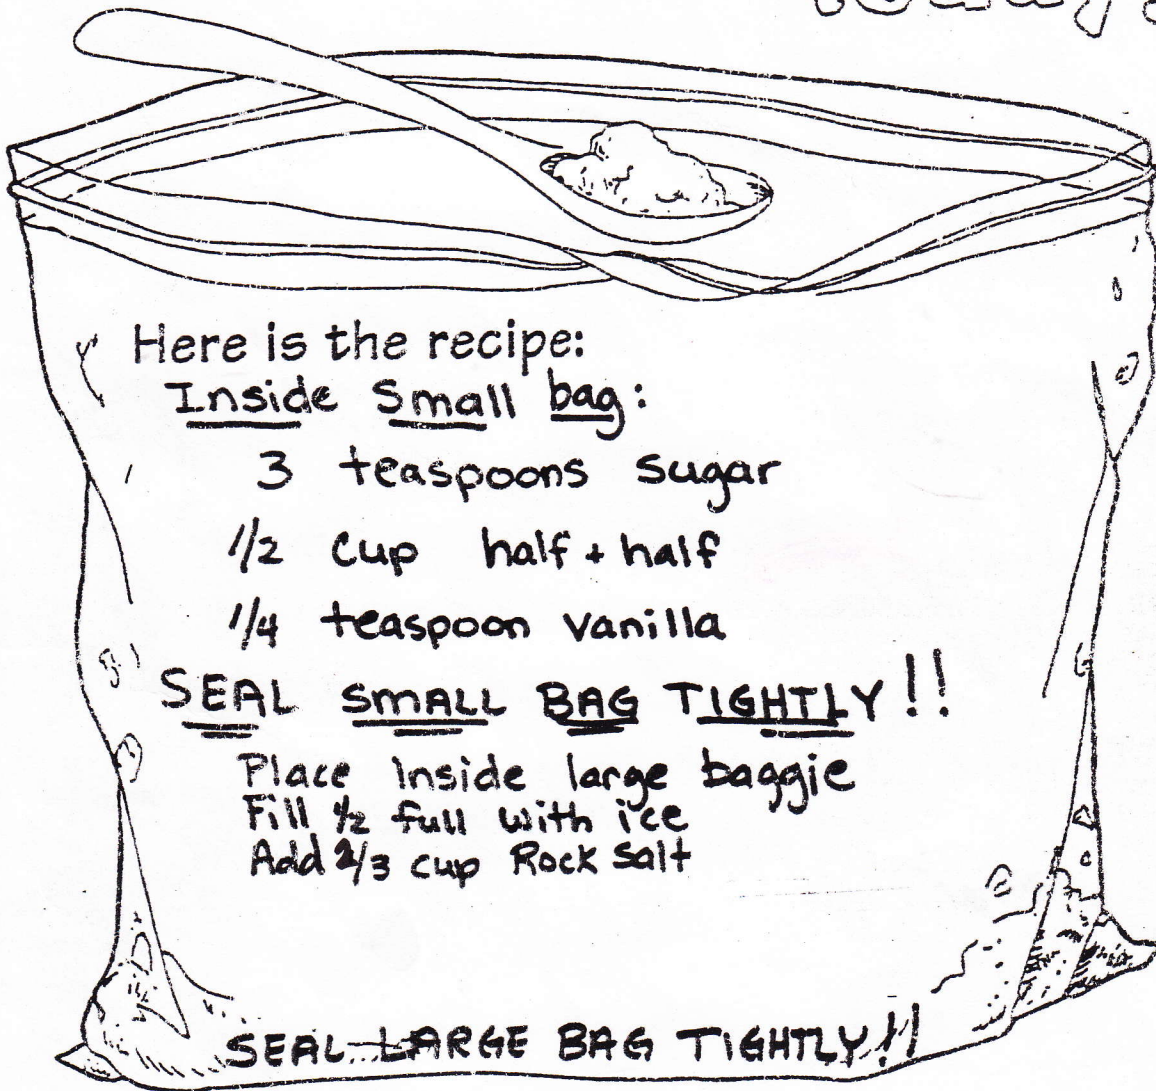 Here is the recipe:
Inside Small bag:
3 teaspoons sugar
1/2 cup half + half
1/4 teaspoon vanilla
SEAL SMALL BAG TIGHTLY!!
Place Inside large baggie
Fill 1/2 full with ice
Add 2/3 cup Rock Salt
SEAL LARGE BAG TIGHTLY!!